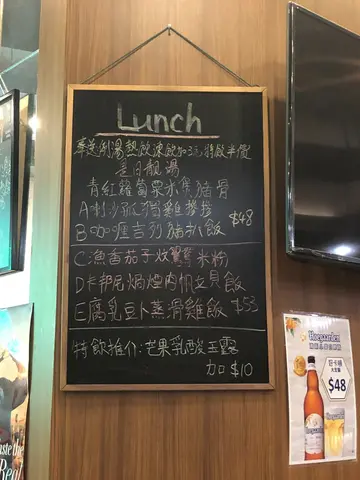 Lunch
奉送例湯熱飲凍飲加3元特飲半價
是日靚湯
青紅蘿蔔粟米煲豬骨
A喇沙孤獨雞
B吉列豬扒飯 $48
C漁香茄子炆鴛鴦米粉
D卡邦尼焗煙肉帆立貝飯
E腐乳豆卜蒸滑雞飯 $53
特飲推介:芒果乳酸玉露
加$10
Hoegaarden
$48
Taste the
Real